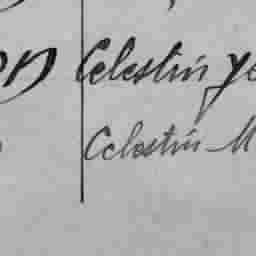 on Celestin ye
Celestin M